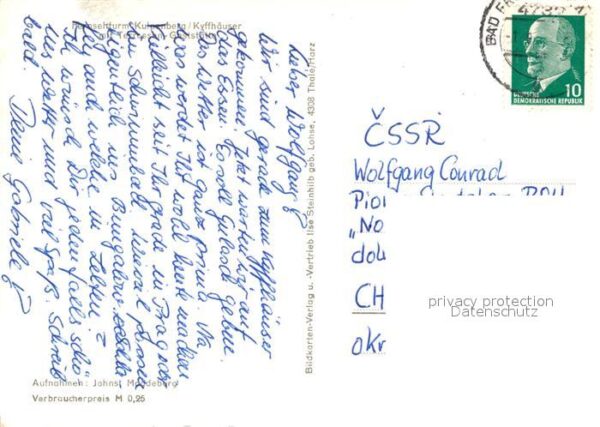 Fernsehturm Kulpenberg / Kyffhäuser
mit Turmcafé Gaststätte
Lieber Wolfgang!
Wir sind gerade zum Kyffhäuser
gekommen. Jetzt warten wir auf
das Essen. Es soll Gulasch geben.
Das Wetter ist ganz prima. Na
was werdet Ihr wohl heute machen
Vielleicht seid Ihr gerade in Prag oder
im Schwimmbad.
Eigentlich im Bungalow
und welche in Zelten?
Ich wünsche Dir jedenfalls schö-
nes Wetter und viel Spaß. Schreib
bald. Deine Gabriele
Aufnahmen: Johnst Magdeburg
Verbraucherpreis M 0,25
Bildkarten-Verlag u. -Vertrieb Ilse Steinhilb geb. Lohse, 4308 Thale/Harz
BAD FR
10
DEUTSCHE
DEMOKRATISCHE REPUBLIK
ČSSR
Wolfgang Conrad
Pio
„No
dol
CH
okr
privacy protection
Datenschutz